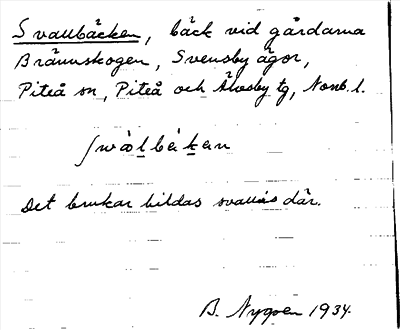 Svallbäcken, bäck vid gårdarna
Brännskogen, Svensby ägor,
Piteå sn, Piteå och Älvsby tg, Nonb. l.
swàlbèkan
Det brukar bildas svallis där.
B. Nygren 1934.